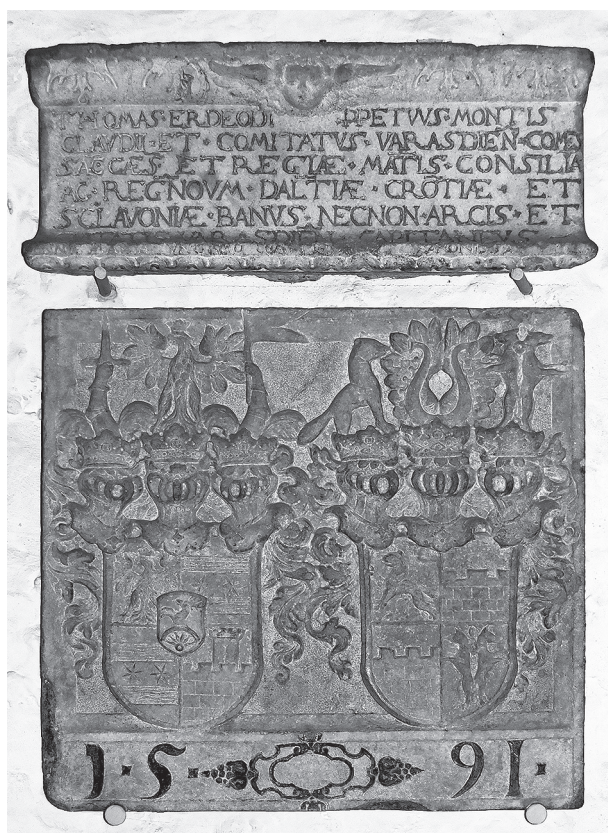 THOMAS·ERDEODI PPETWS·MONTIS
CLAVDII·ET·COMITATVS·VARASDIEN·COMES
SAC·CES·ET REGIÆ·MATIS·CONSILIA
AC·REGNOVM·DALTIÆ·CROTIÆ·ET
SCLAVONIÆ·BANVS·NECNON·ARCIS·ET
CAPITANEVS
1·5·91·